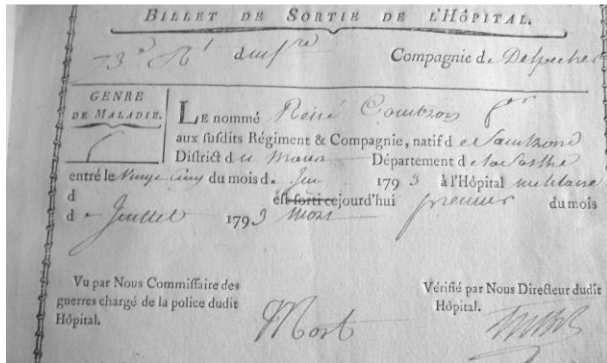 BILLET DE SORTIE DE L'HÔPITAL.
73e Rt d'inf re Compagnie de Delpeches
GENRE
DE MALADIE.
LE nommé René
aux susdits Régiment & Compagnie, natif de
District du Mans Département de la Sarthe
entré le Vingt cinq du mois de Juin 1793 à l'Hôpital militaire
d est sorti cejourd'hui premier du mois
de Juillet 1793 Mort
Vu par Nous Commissaire des
guerres chargé de la police dudit
Hôpital.
Mort
Vérifié par Nous Directeur dudit
Hôpital.